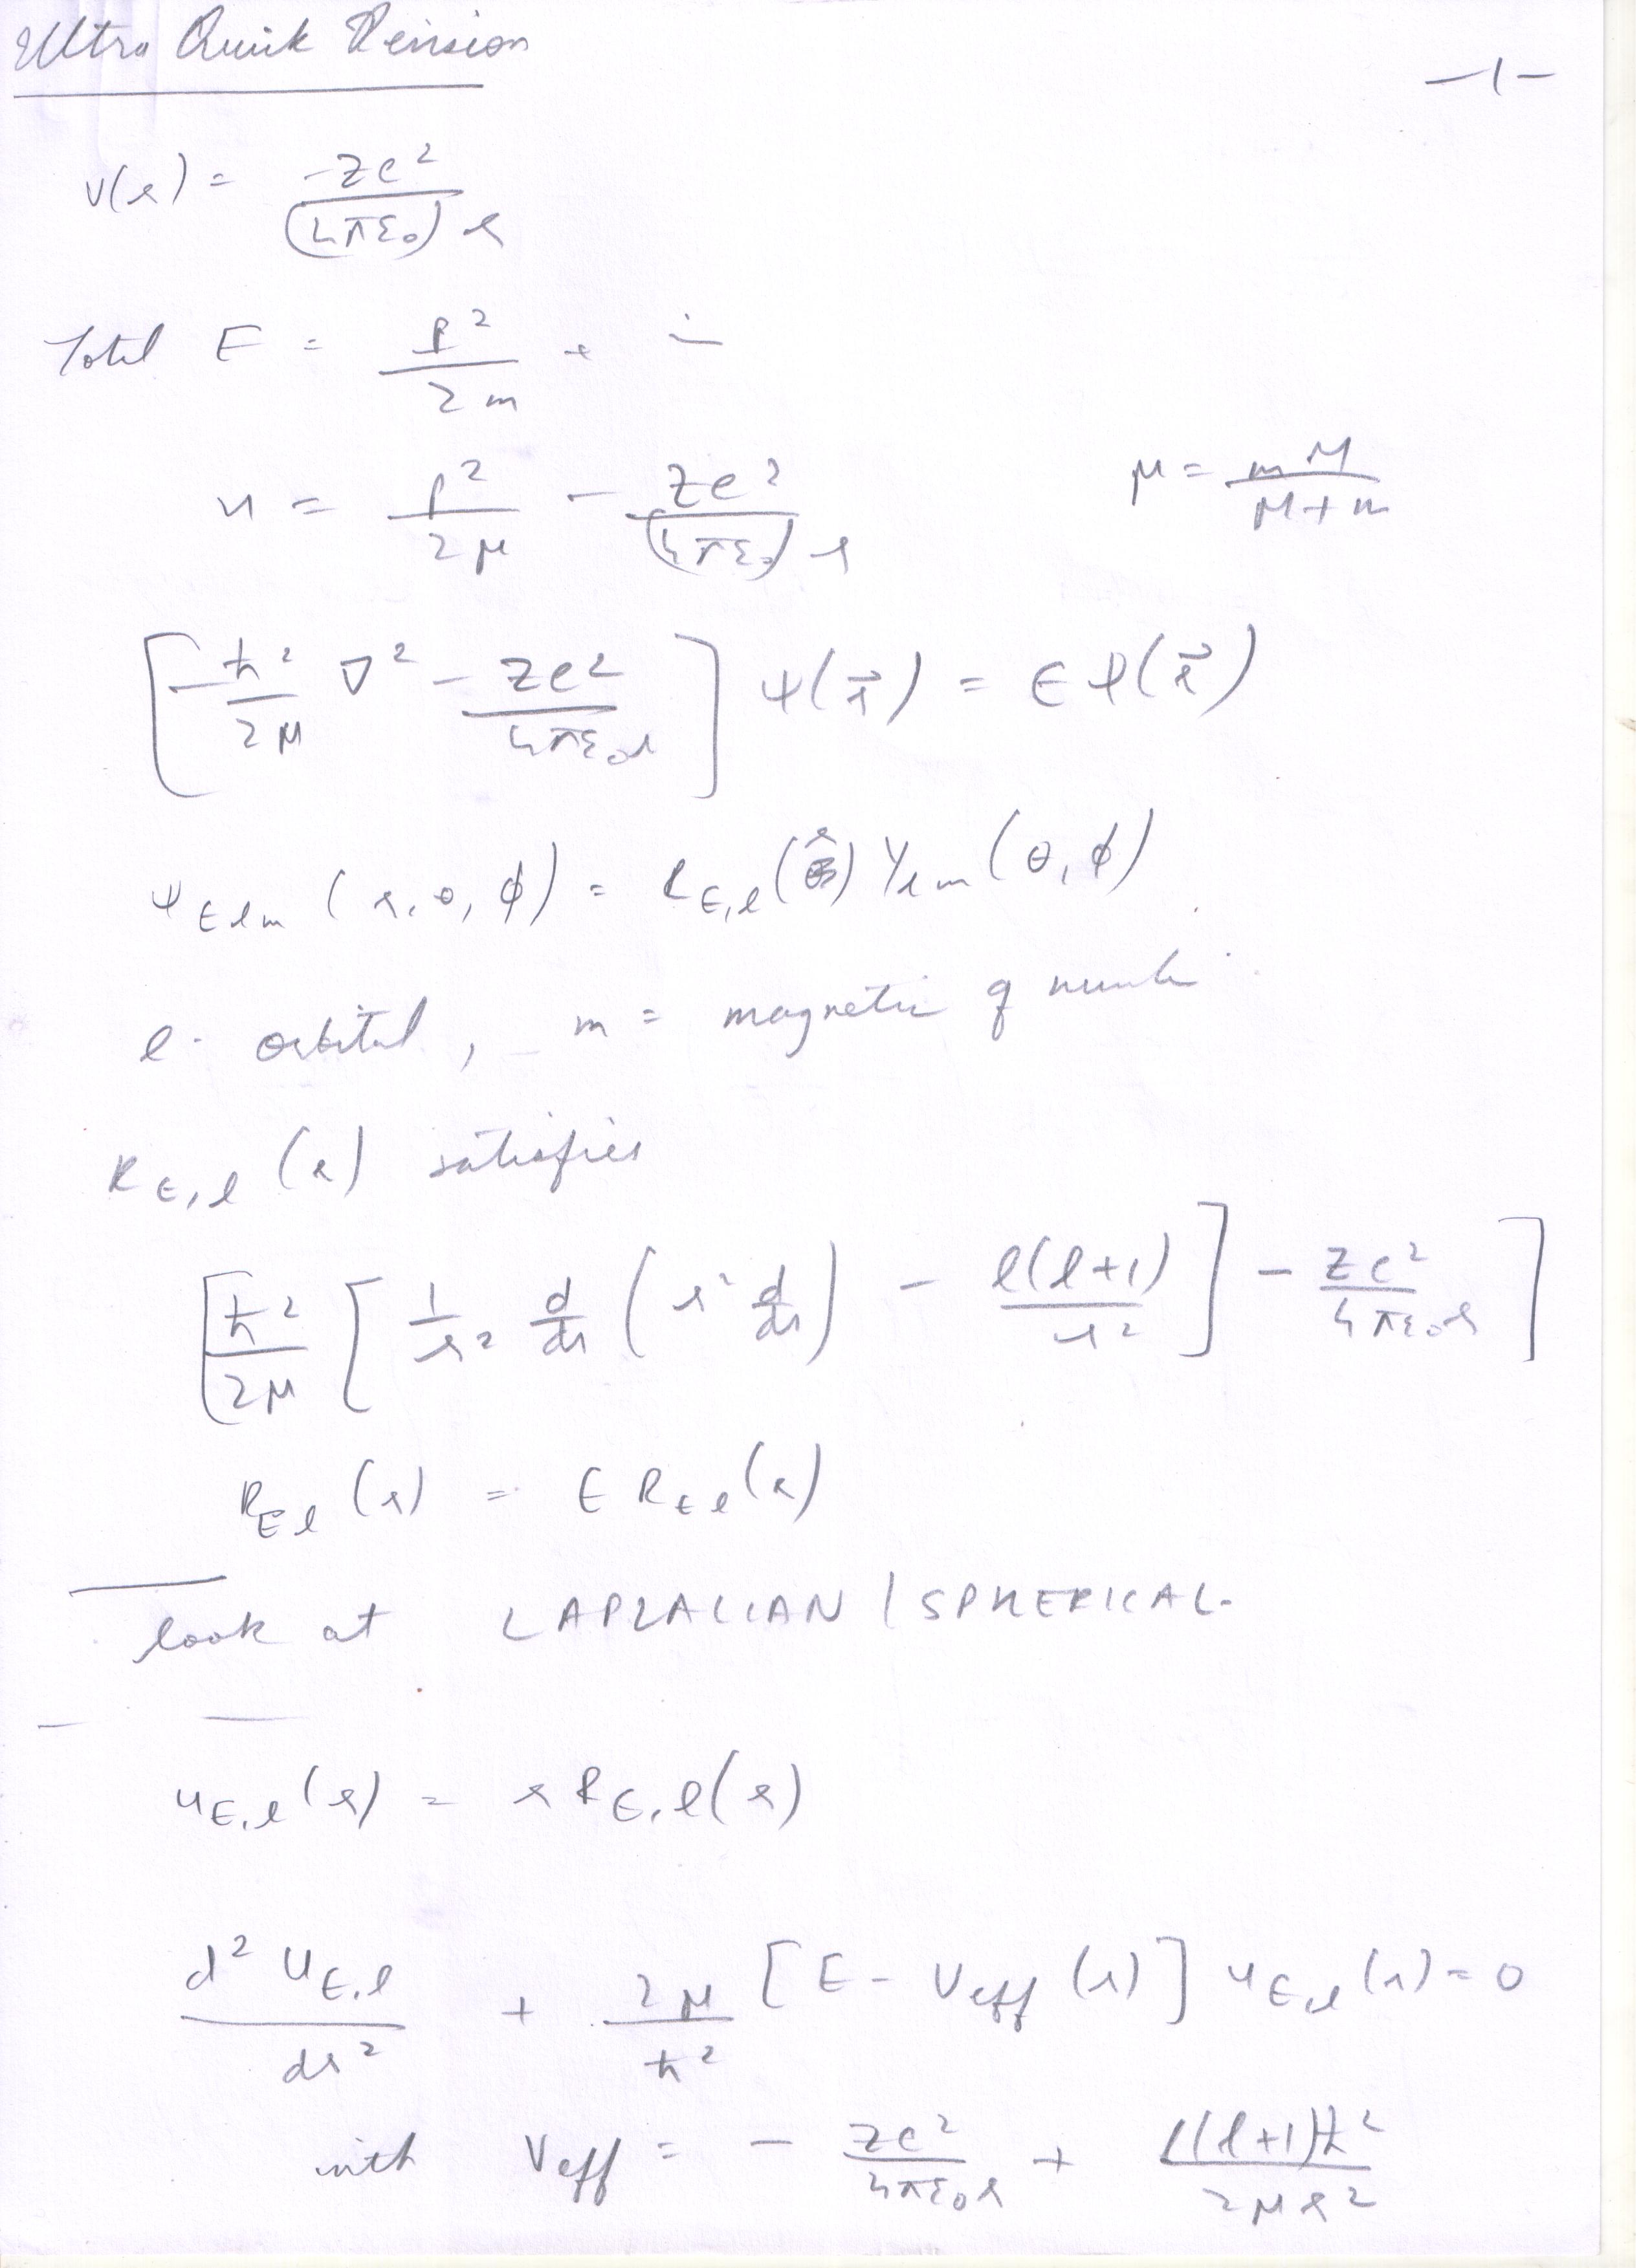 Ultra Quick Revision
-1-
V(r) = -Ze² / (4πε₀) r
Total E = p² / 2m + ...
H = p² / 2μ - Ze² / (4πε₀) r    μ = mM / M+m
[ -ħ² / 2μ ∇² - Ze² / 4πε₀r ] ψ(r⃗) = E ψ(r⃗)
ψ_Elm (r, θ, φ) = R_E,l (r) Y_lm (θ, φ)
l - orbital, m = magnetic q number
R_E,l (r) satisfies
[ ħ² / 2μ [ 1/r² d/dr ( r² d/dr ) - l(l+1) / r² ] - Ze² / 4πε₀r ]
R_El (r) = E R_El (r)
look at LAPLACIAN / SPHERICAL-
u_E,l (r) = r R_E,l (r)
d² u_E,l / dr² + 2μ / ħ² [ E - V_eff (r) ] u_E,l (r) = 0
with V_eff = - Ze² / 4πε₀r + l(l+1)ħ² / 2μr²